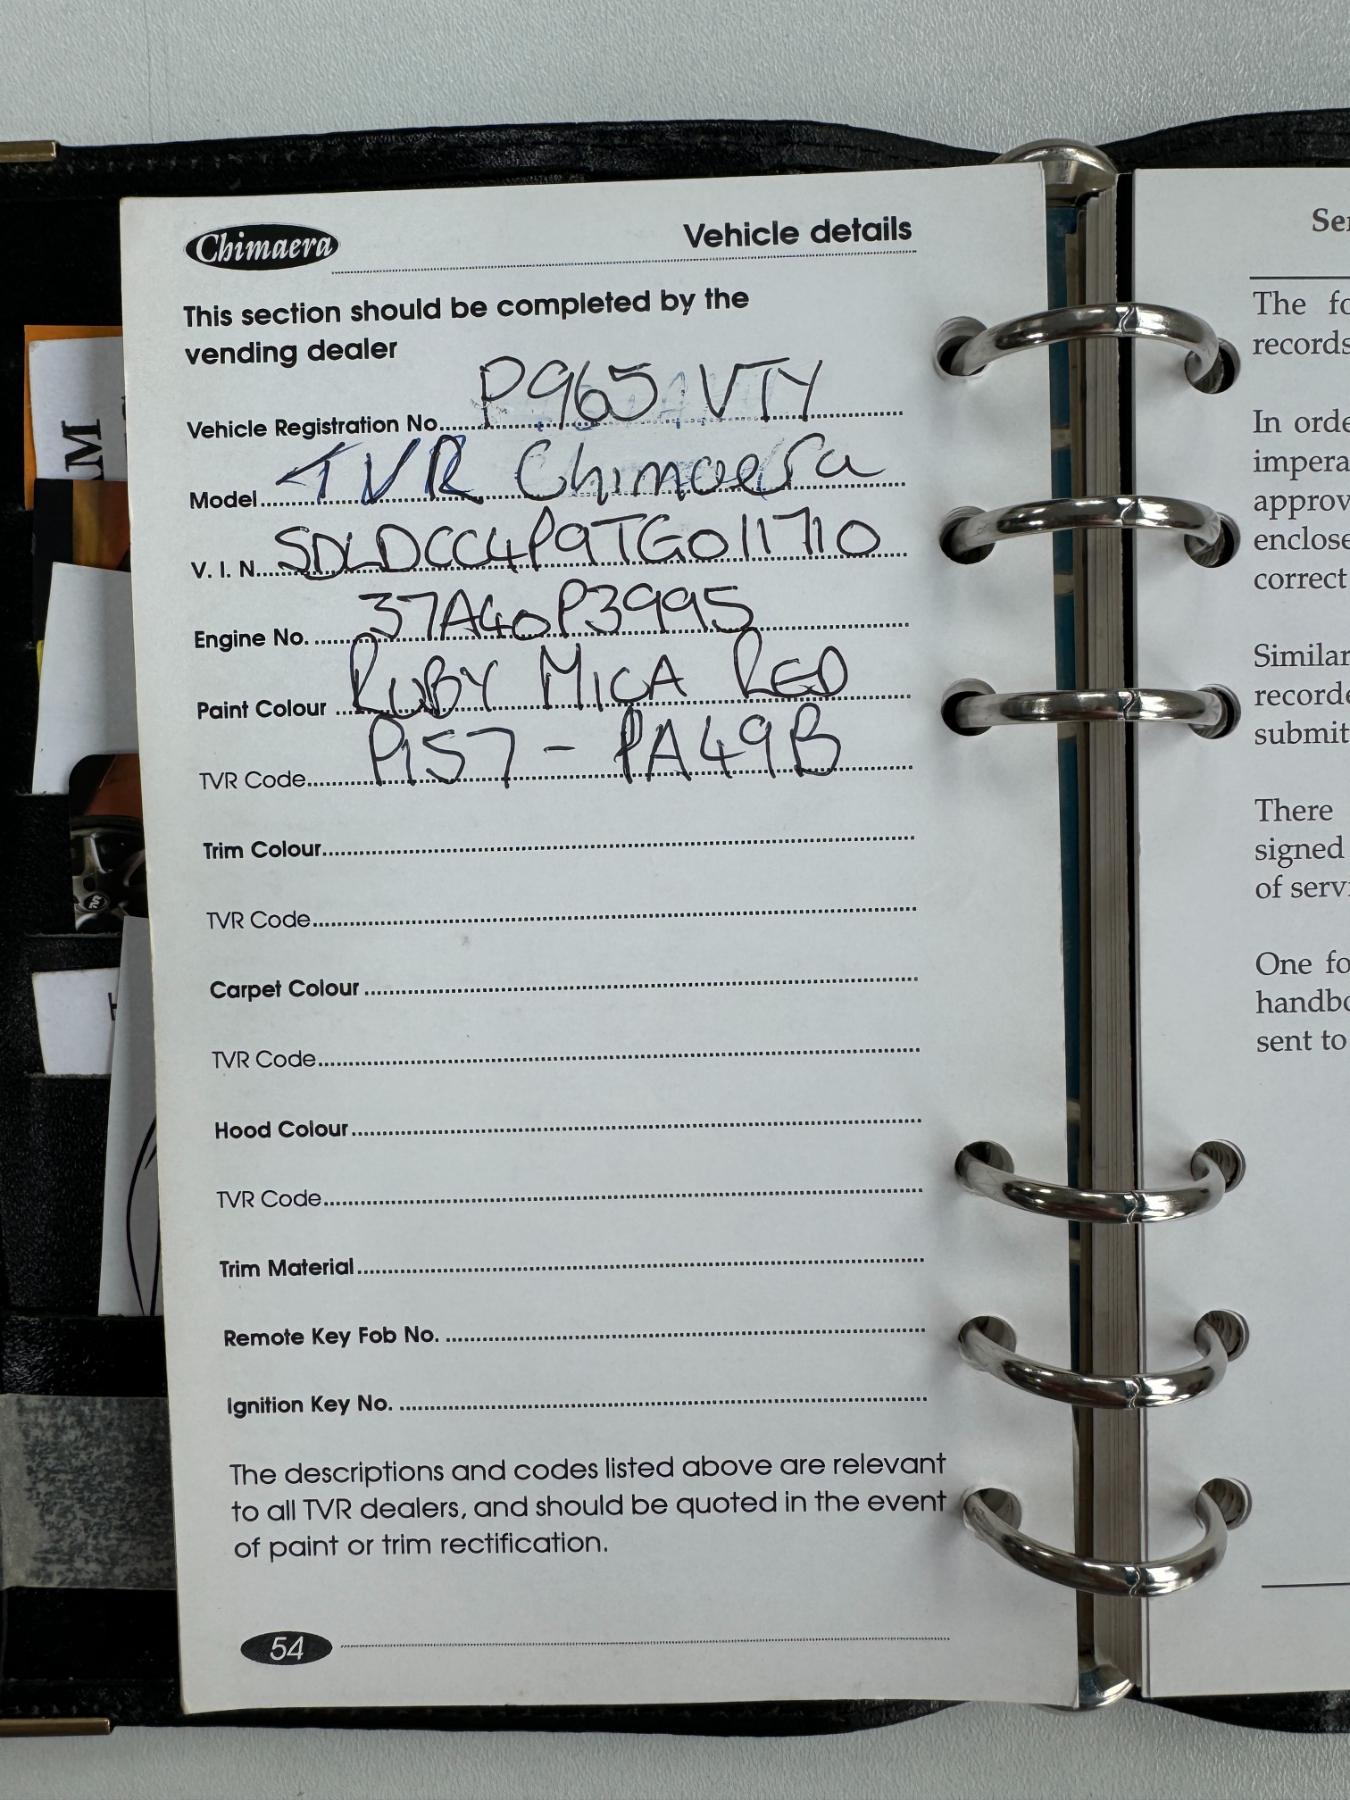 Chimaera Vehicle details
This section should be completed by the
vending dealer
Vehicle Registration No. P965 VTY
Model TVR Chimaera
V. I. N. SDLDCC4P9TG011710
Engine No. 37A40P3995
Paint Colour RUBY MICA RED
TVR Code P157 - PA49B
Trim Colour
TVR Code
Carpet Colour
TVR Code
Hood Colour
TVR Code
Trim Material
Remote Key Fob No.
Ignition Key No.
The descriptions and codes listed above are relevant
to all TVR dealers, and should be quoted in the event
of paint or trim rectification.
54
The
records
In
correct
Similar
There
signed
of
One
sent to